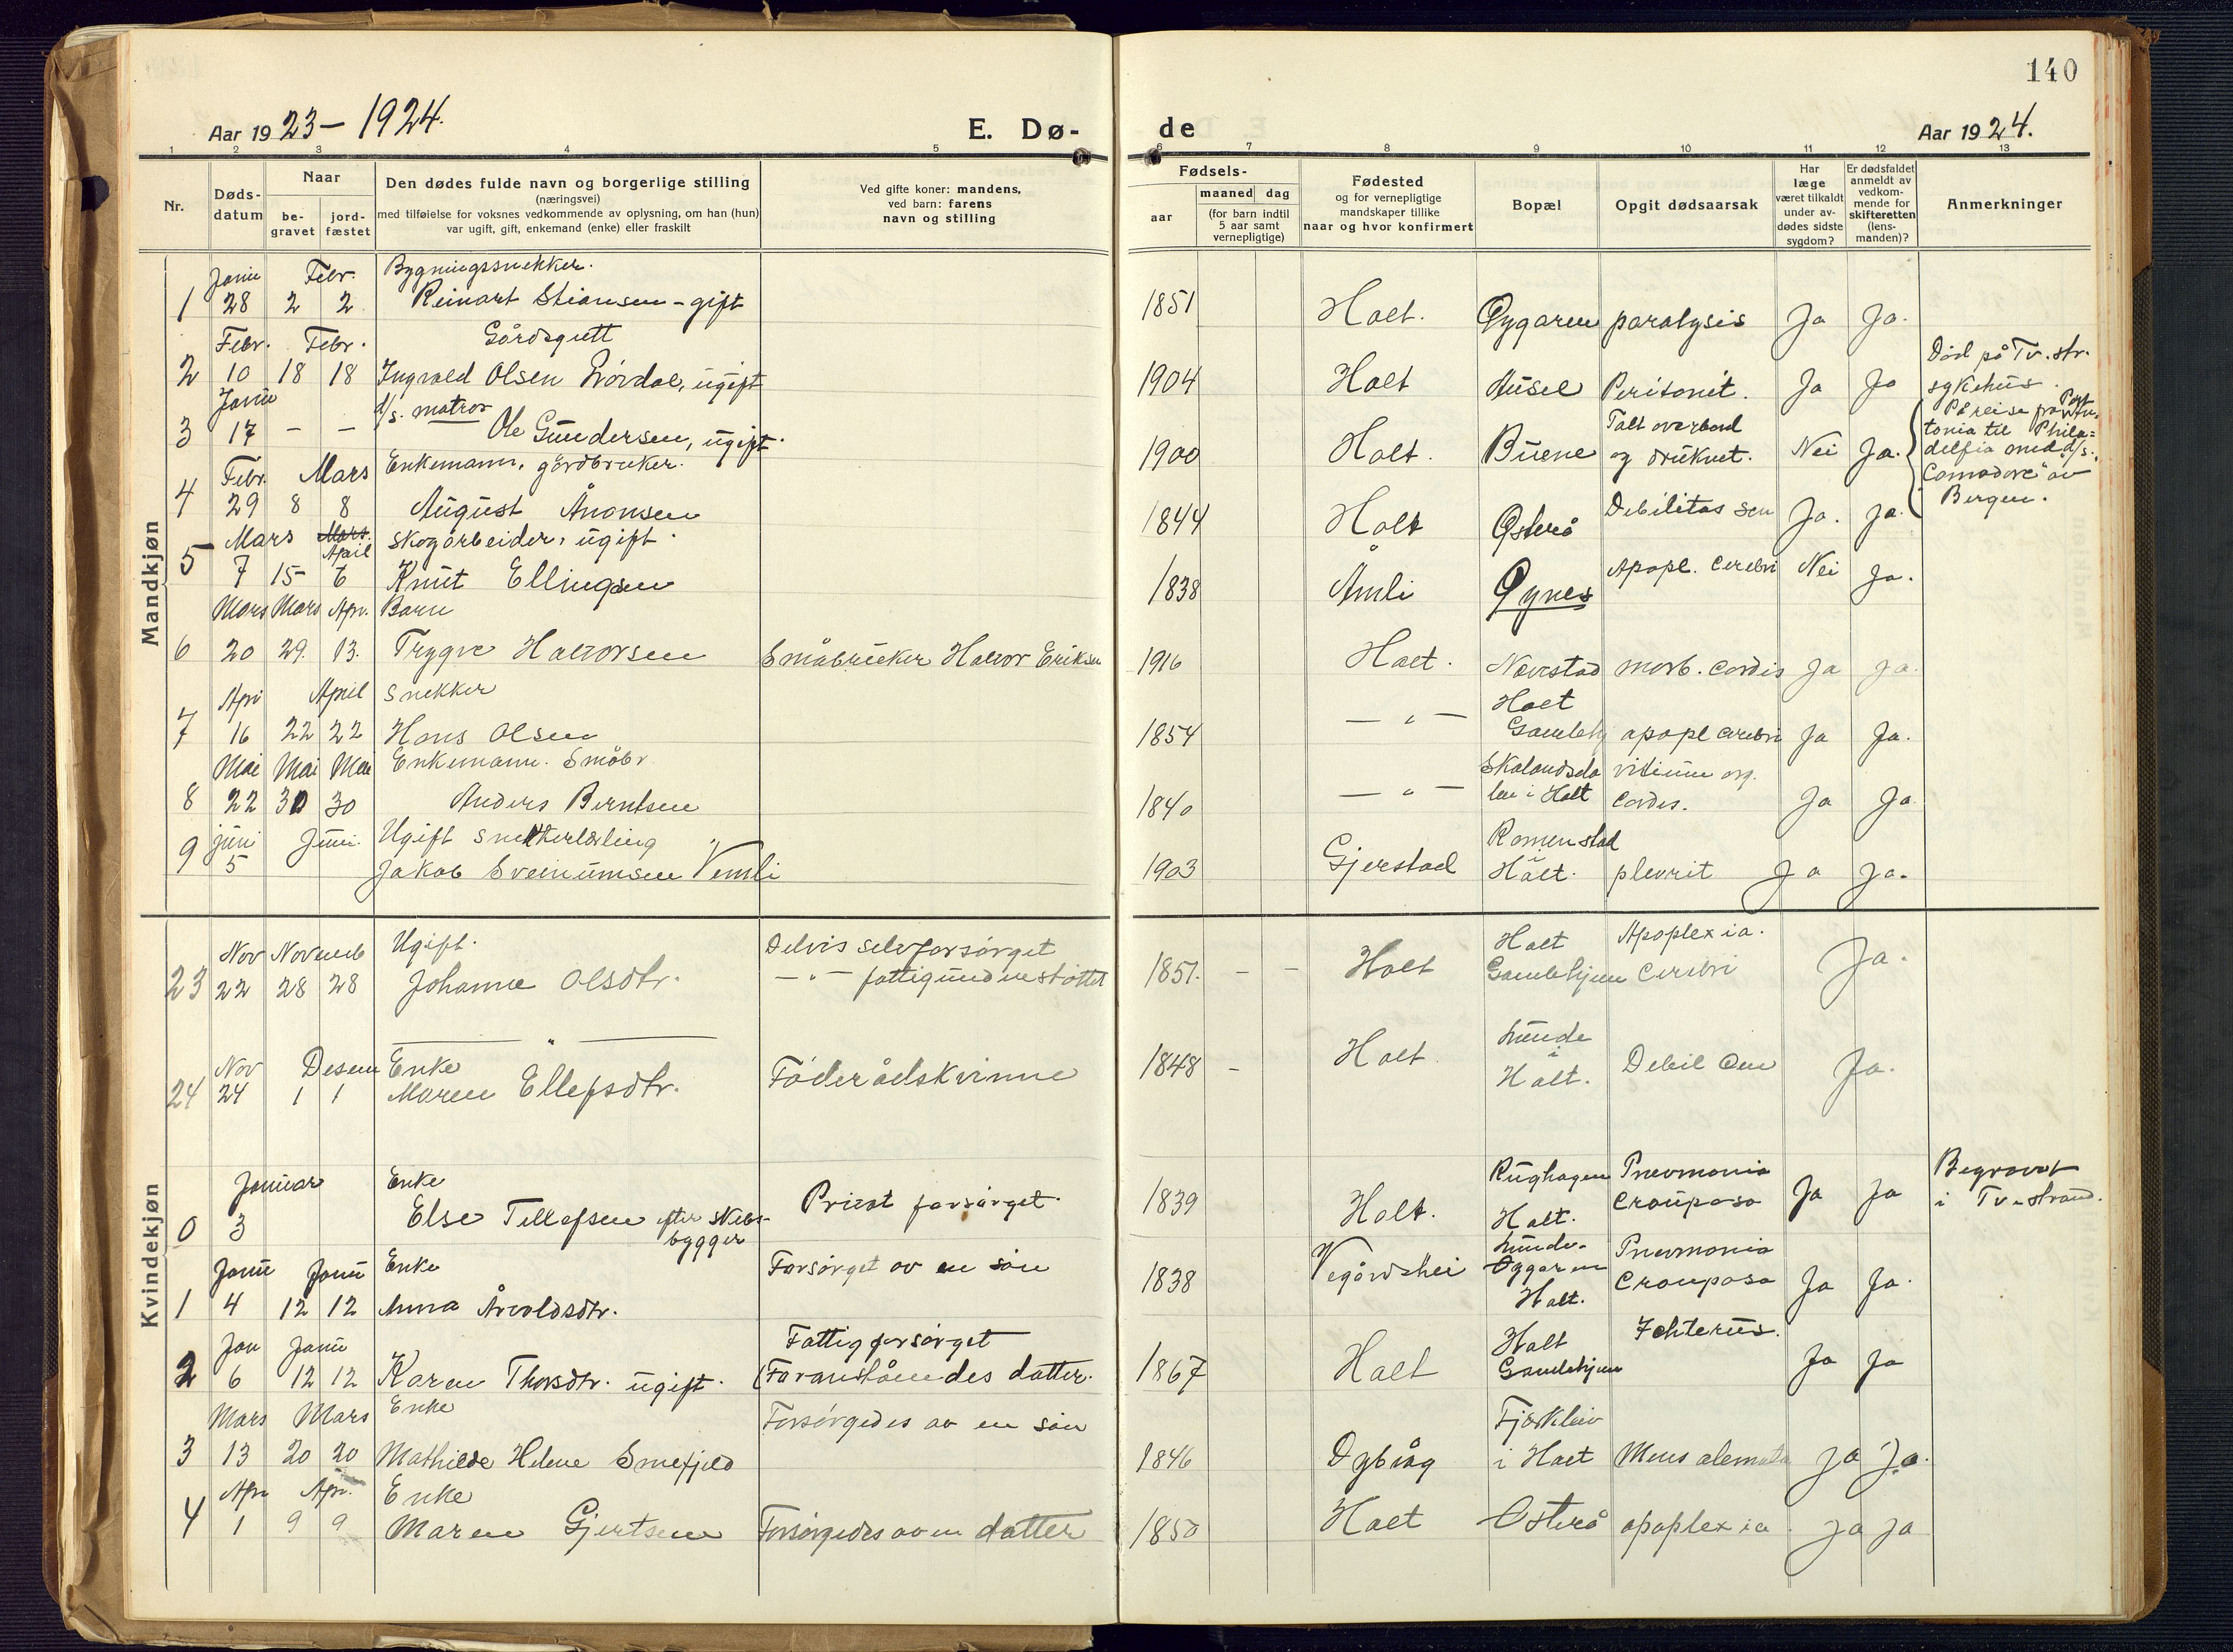 140
Aar 1923 – 1924.
E. Dø-
de
Aar 1924.
1 2 3 4 5 6 7 8 9 10 11 12 13
Nr.
Døds-
datum
Naar
be-
gravet
jord-
fæstet
Den dødes fulde navn og borgerlige stilling
(næringsvei)
med tilføielse for voksnes vedkommende av oplysning, om han (hun)
var ugift, gift, enkemand (enke) eller fraskilt
Ved gifte koner: mandens,
ved barn: farens
navn og stilling
Fødsels-
aar
maaned dag
(for barn indtil
5 aar samt
vernepligtige)
Fødested
og for vernepligtige
mandskaper tillike
naar og hvor konfirmert
Bopæl
Opgit dødsaarsak
Har
læge
været tilkaldt
under av-
dødes sidste
sygdom?
Er dødsfaldet
anmeldt av
vedkom-
mende for
skifteretten
(lens-
manden)?
Anmerkninger
Mandkjøn
Janu Febr. Bygningssnekker.
1 28 2 2 Reinart Stiansen - gift 1851 Holt. paralysis Ja Ja.
Febr. Febr. Gårdsgutt
2 10 18 18 Ingvald Olsen ugift 1904 Holt Peritonit. Ja Ja Död på Tv.str. sykehus.
Janu d/s. matros
3 17 - - Ole Gundersen, ugift. 1900 Holt. Buene Falt overbord og druknet. Nei Ja. På reise fra
til Phila=
delfia med d/s.
"Comodore" av
Bergen.
Febr. Mars Enkemann, gårdbruker.
4 29 8 8 August Ånonsen 1844 Holt Østerå Debilitas sen Ja. Ja.
Mars Mars. April Skogarbeider, ugift.
5 7 15 6 Knut Ellingsen 1838 Åmli Øynes Apopl. cerebri Nei Ja.
Mars Mars Apr. Barn
6 20 29. 13. Trygve Halvorsen Småbruker Halvor Eriksen 1916 Holt. Neverstad morb. cordis Ja Ja.
Apr April Snekker
7 16 22 22 Hans Olsen 1854 – " – Holt Gamlehj apopl cerebri Ja Ja.
Mai Mai Mai Enkemann. Småbr
8 22 30 30 Anders Berntsen 1840 – " – Skalandsda
len i Holt vitium org.
cordis. Ja Ja
juni Juni. Ugift snekkerlærling
9 5 Jakob Sveinumsen Vemli 1903 Gjerstad Romenstad
i
Holt. plevrit Ja Ja.
Kvindekjøn
Nov Novemb Ugift. Delvis selvforsörget
23 22 28 28 Johanne Olsdtr. – " – fattigunderstöttet 1851. - - Holt Holt
Gamlehjem Apoplexia.
Cerebri Ja.
Nov Desem Enke
24 24 1 1 Maren Ellefsdtr. Föderådskvinne 1848 - Holt Lunde
i
Holt. Debil Sen Ja.
Januar Enke
0 3 Else Tellefsen efter skibs-
bygger Privat forsörget. 1839 Holt. Rughagen
Holt. Pnevmonia
Crouposa Ja Ja Begravet
i Tv.strand.
Janu Janu Enke Forsörget av en sön
1 4 12 12 Anna Årvoldsdtr. 1838 Vegårdshei Lunde-
Holt. Pnevmonia
Crouposa Ja Ja.
Jan Janu Fattigforsörget
2 6 12 12 Karen Thorsdtr. ugift. (Foranståendes datter. 1867 Holt Holt
Gamlehjem Ichterus. Ja Ja
Mars Mars Enke Forsörgedes av en sön
3 13 20 20 Mathilde Helene Smefjeld 1846 Dybvåg Fjærkleiv
i Holt Ja Ja.
Apr Apr. Enke
4 1 9 9 Maren Gjertsen Forsörgedes av en datter 1850 Holt Österå apoplexia. Ja Ja